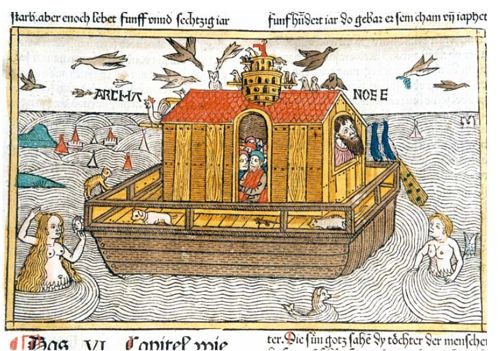 starb. aber enoch lebet funff vnnd sechtzig iar
funfhundert iar do gebar er sem cham vñ iaphet
ARCHA NOEE
Das VI Capitel wie
ter. Die sün gotz sahē dy töchter der menschen